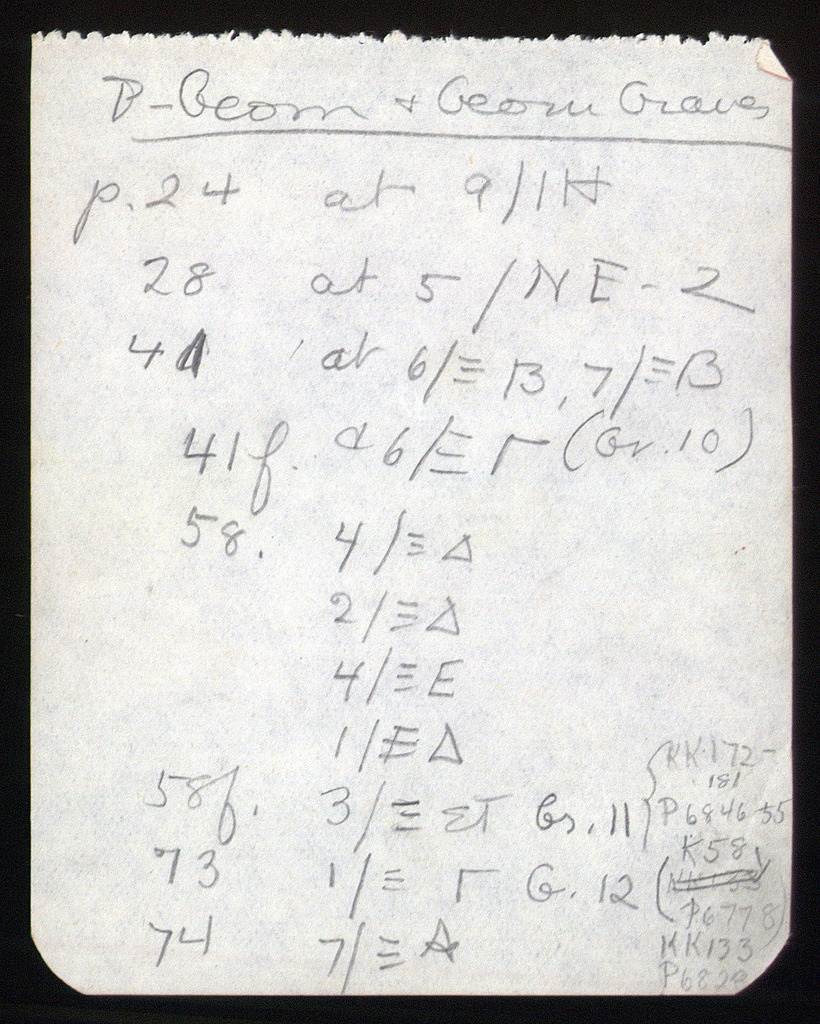 P-Geom + Geom Graves
p.24 at 9/1H
28 at 5/NE-Z
41 at 6/ΞB, 7/ΞB
41f. 6/ΞΓ (Gr.10)
58. 4/ΞΔ
2/ΞΔ
4/ΞE
1/ΞΔ
58f. 3/Ξ ΣΤ Gr.11 (KK172-
181
P6846-55
K58)
73 1/Ξ Γ G.12 (
P6778)
74 7/ΞA KK133
P6829